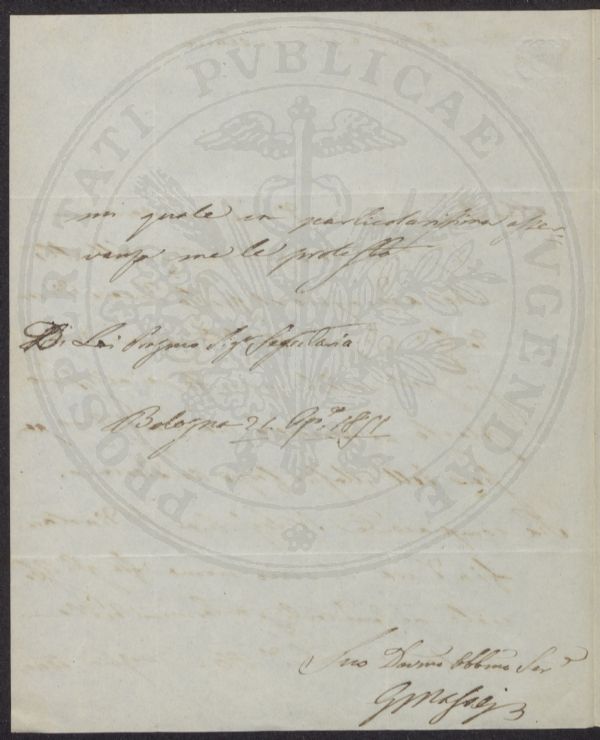 PROSPERITATI PVBLICAE AVGENDAE
quale in particolarissima osser-
vanza me le protesto
Di Lei Pregmo Sigr Segretario
Bologna 21. Ap. 1851
Suo Devmo Obbmo Ser